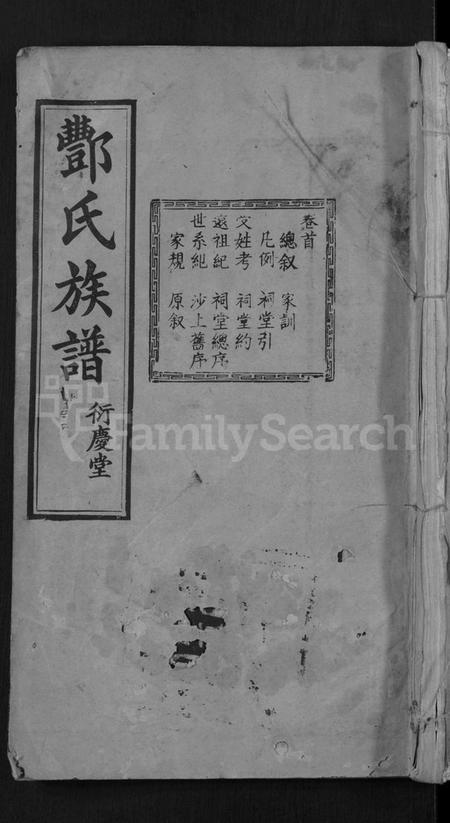 卷首
總叙 家訓
凡例 祠堂引
受姓考 祠堂約
遠祖紀 祠堂總序
世系紀 沙上舊序
家規 原叙
酆氏族譜
衍慶堂
FamilySearch